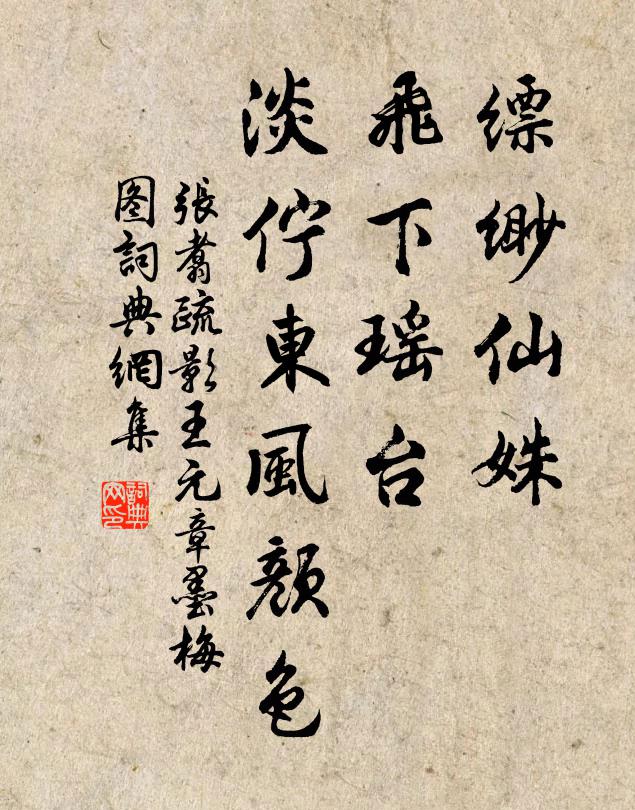 缥缈仙姝
飛下瑶台
淡佇東風顏色
張翥疏影王元章墨梅
图詞典網集
詞典网印